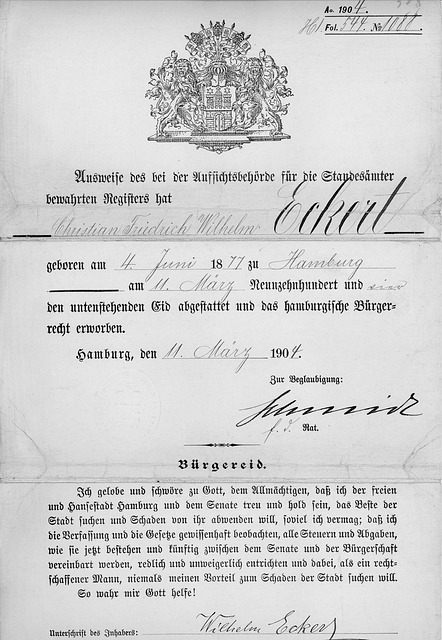 Ao. 1904.
Fol. 544. No. 1081.
Ausweise des bei der Aufsichtsbehörde für die Standesämter
bewahrten Registers hat
Christian Friedrich Wilhelm Eckert
geboren am 4. Juni 1877 zu Hamburg
am 11. März Neunzehnhundert und vier
den untenstehenden Eid abgestattet und das hamburgische Bürger-
recht erworben.
Hamburg, den 11. März 1904.
Zur Beglaubigung:
Schmidt
f. d. Rat.
Bürgereid.
Ich gelobe und schwöre zu Gott, dem Allmächtigen, daß ich der freien
und Hansestadt Hamburg und dem Senate treu und hold sein, das Beste der
Stadt suchen und Schaden von ihr abwenden will, soviel ich vermag; daß ich
die Verfassung und die Gesetze gewissenhaft beobachten, alle Steuern und Abgaben,
wie sie jetzt bestehen und künftig zwischen dem Senate und der Bürgerschaft
vereinbart werden, redlich und unweigerlich entrichten und dabei, als ein recht-
schaffener Mann, niemals meinen Vorteil zum Schaden der Stadt suchen will.
So wahr mir Gott helfe!
Unterschrift des Inhabers: Wilhelm Eckert